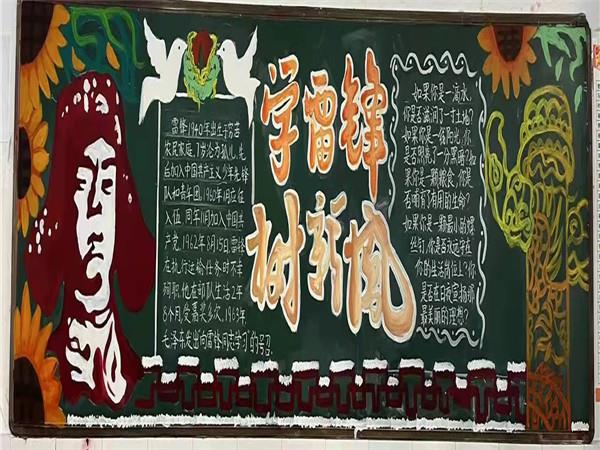 学雷锋
树新风
雷锋,1940年出生于贫苦
农民家庭,7岁沦为孤儿,先
后加入中国共产主义少年先锋
队和青年团,1960年1月应征
入伍,同年11月加入中国共
产党,1962年8月15日,雷锋
在执行运输任务时不幸
殉职,他在部队生活2年
8个月,受嘉奖多次,1963年
毛泽东发出向雷锋同志学习的号召.
如果你是一滴水,
你是否滋润了一寸土地?
如果你是一线阳光,你
是否照亮了一分黑暗?如
果你是一颗粮食,你是
否哺育了有用的生命?
如果你是一颗最小的螺
丝钉,你是否永远守在
你的生活岗位上?你
是否在日夜宣扬那
最美丽的理想?